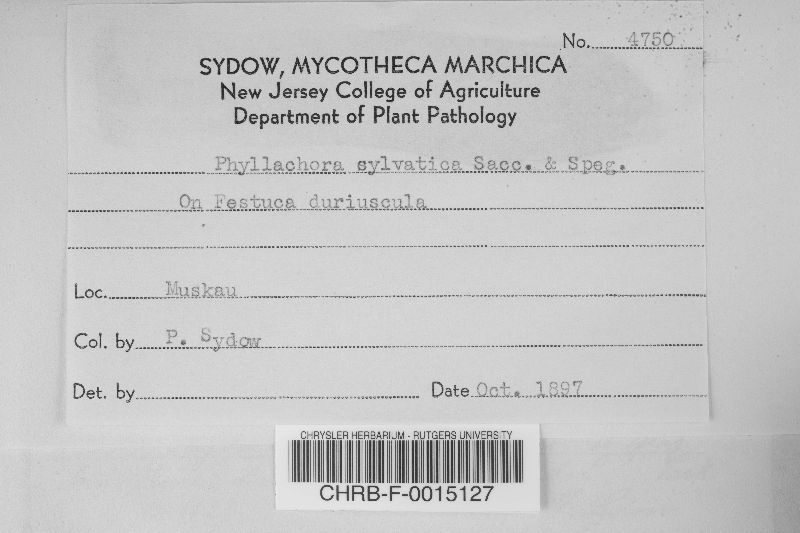 No. 4750
SYDOW, MYCOTHECA MARCHICA
New Jersey College of Agriculture
Department of Plant Pathology
Phyllachora sylvatica Sacc. & Speg.
On Festuca duriuscula
Loc. Muskau
Col. by P. Sydow
Det. by Date Oct. 1897
CHRYSLER HERBARIUM - RUTGERS UNIVERSITY
CHRB-F-0015127